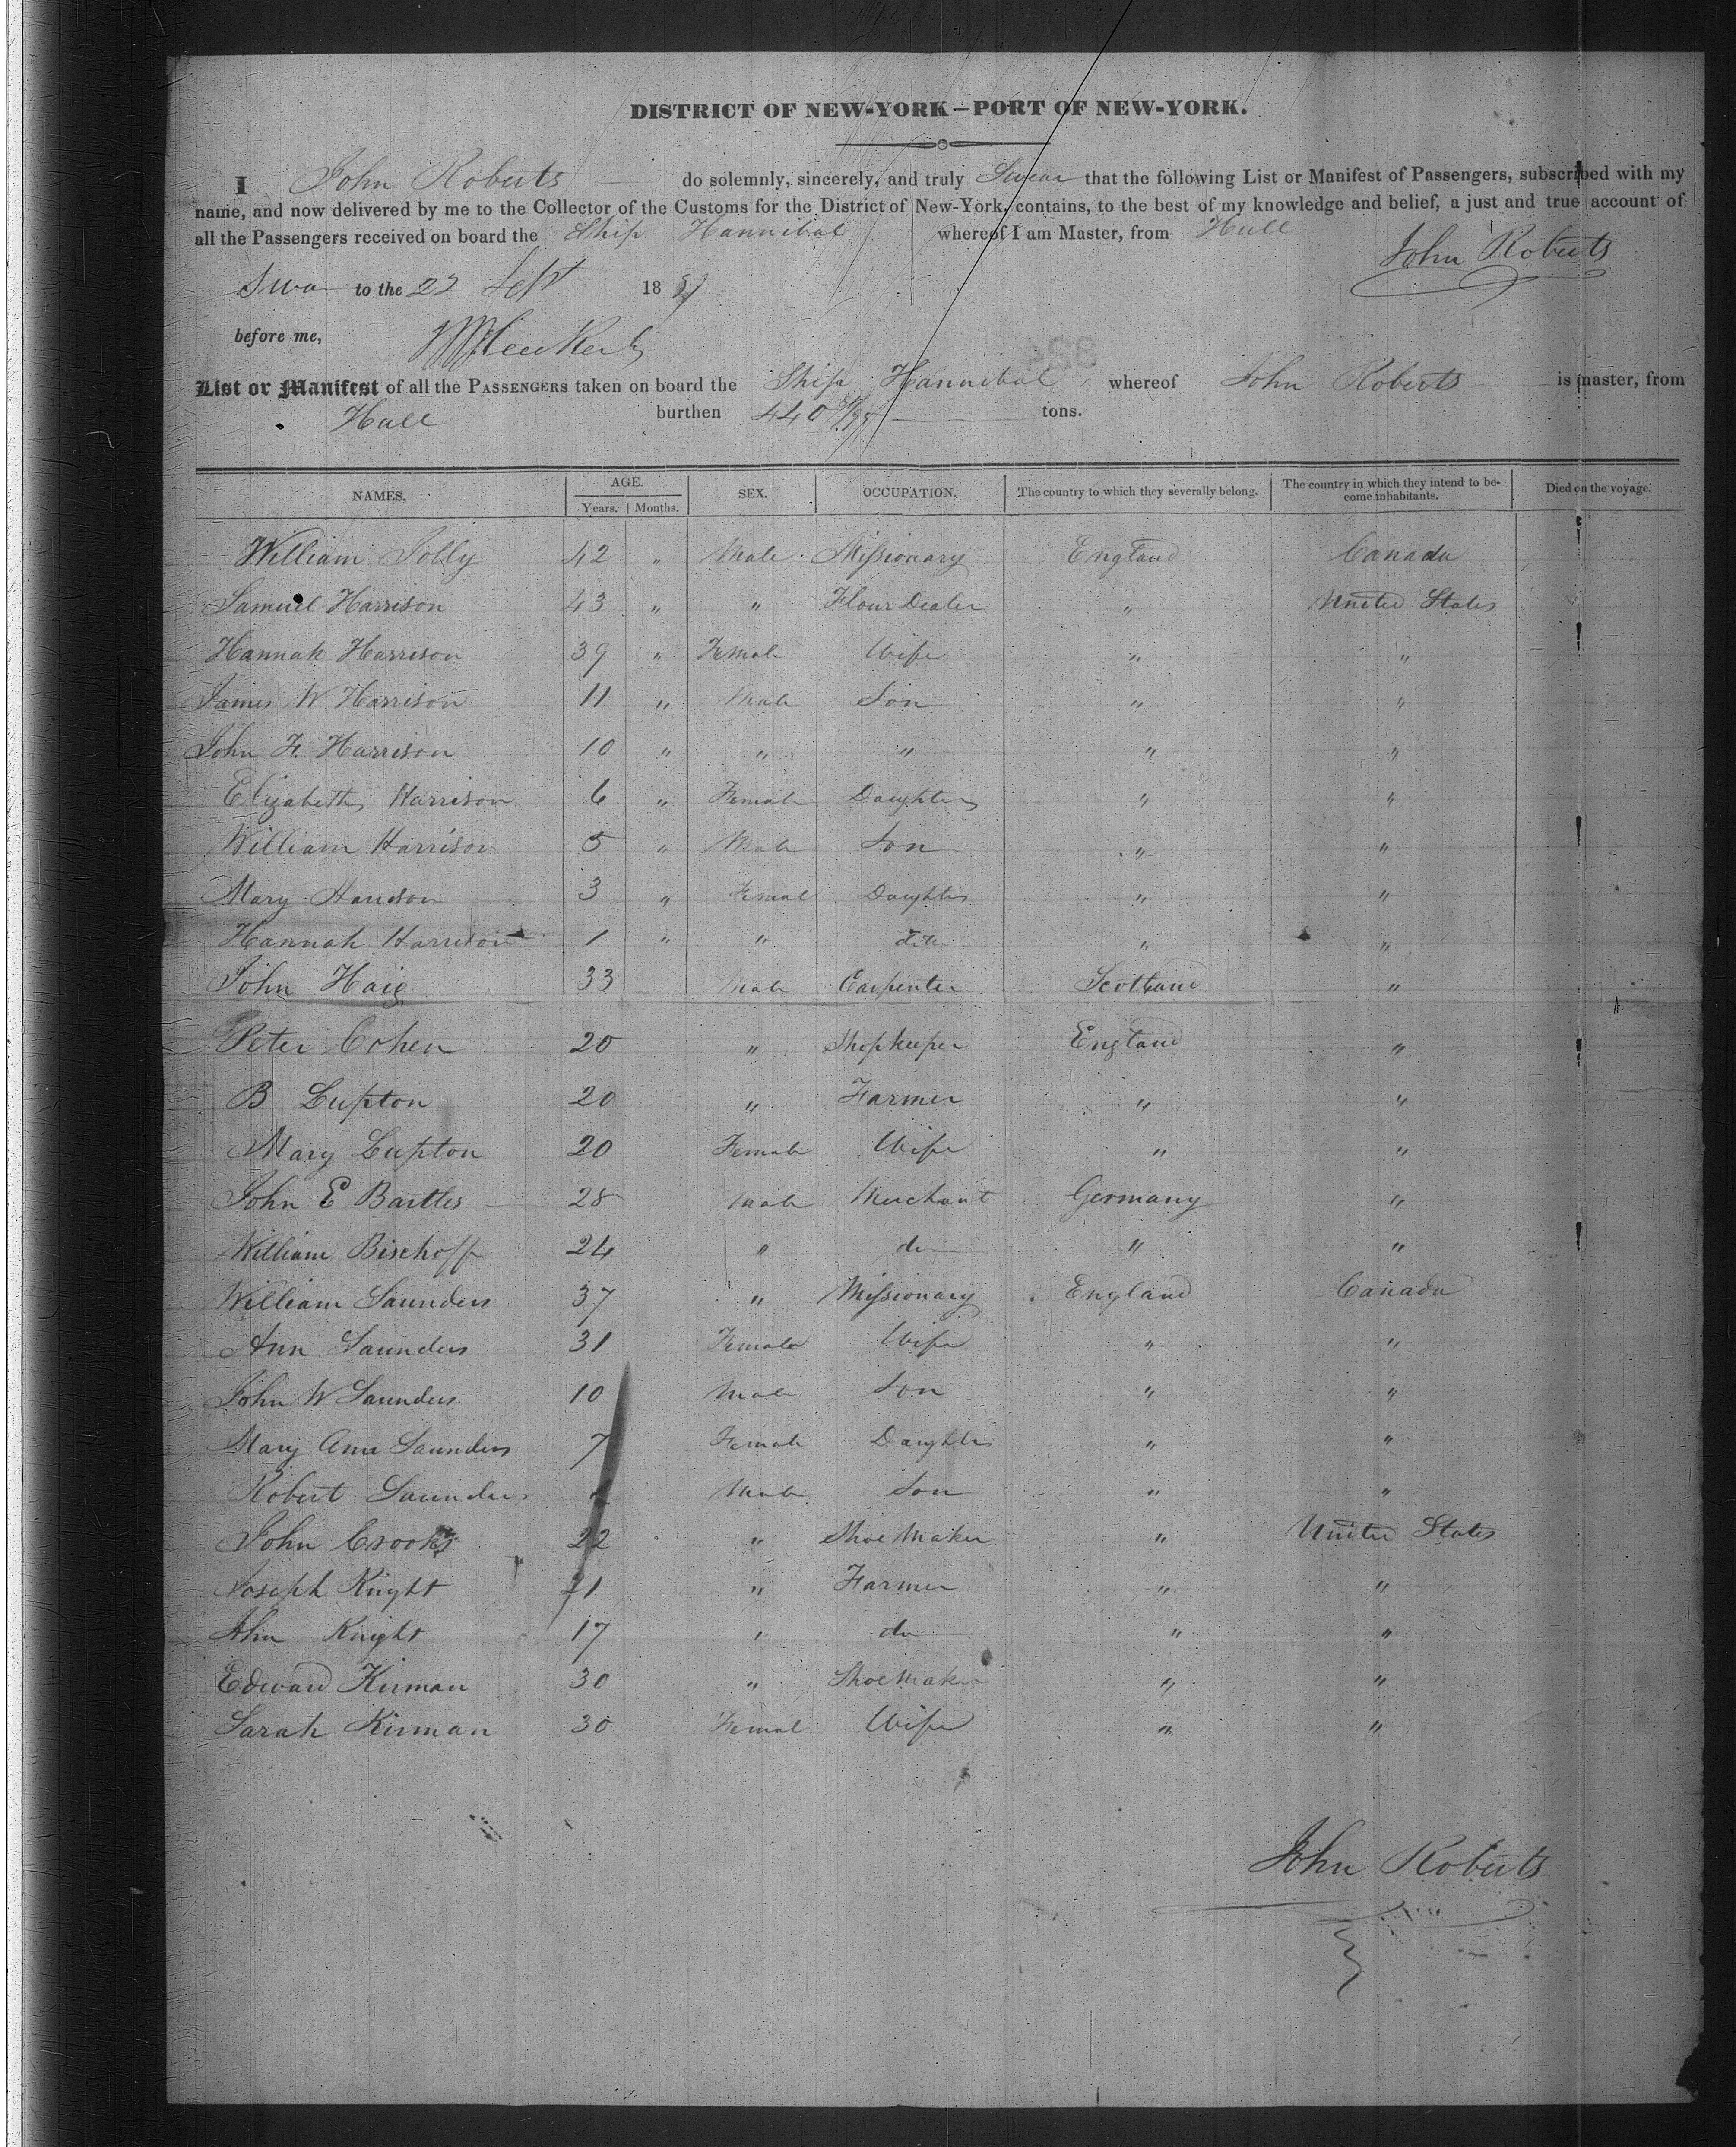 DISTRICT OF NEW-YORK—PORT OF NEW-YORK.
I John Roberts do solemnly, sincerely, and truly Swear that the following List or Manifest of Passengers, subscribed with my
name, and now delivered by me to the Collector of the Customs for the District of New-York, contains, to the best of my knowledge and belief, a just and true account of
all the Passengers received on board the Ship Hannibal whereof I am Master, from Hull
John Roberts
Swo to the 22 Sept 18
before me,
List or Manifest of all the PASSENGERS taken on board the Ship Hannibal whereof John Roberts is master, from
Hull burthen 440 /95 tons.
NAMES. AGE. SEX. OCCUPATION. The country to which they severally belong. The country in which they intend to be-come inhabitants. Died on the voyage.
Years. Months.
William Jolly 42 " Male Missionary England Canada
Samuel Harrison 43 " " Flour Dealer " United States
Hannah Harrison 39 " Female Wife " "
James W Harrison 11 " Male Son " "
John F. Harrison 10 " " " " "
Elizabeth Harrison 6 " Female Daughter " "
William Harrison 5 " Male Son " "
Mary Harrison 3 " Female Daughter " "
Hannah Harrison 1 " " ditto " "
John Haig 33 Male Carpenter Scotland "
Peter Cohen 20 " Shopkeeper England "
B Lupton 20 " Farmer " "
Mary Lupton 20 Female Wife " "
John E Bartles 28 Male Merchant Germany "
William Bischoff 24 " do " "
William Saunders 37 " Missionary England Canada
Ann Saunders 31 Female Wife " "
John W Saunders 10 Male Son " "
Mary Ann Saunders 7 Female Daughter " "
Robert Saunders Male Son " "
John Crooks 22 " Shoe Maker " United States
Joseph Knight 21 " Farmer " "
John Knight 17 " do " "
Edward Kirman 30 " Shoe Maker " "
Sarah Kirman 30 Female Wife " "
John Roberts